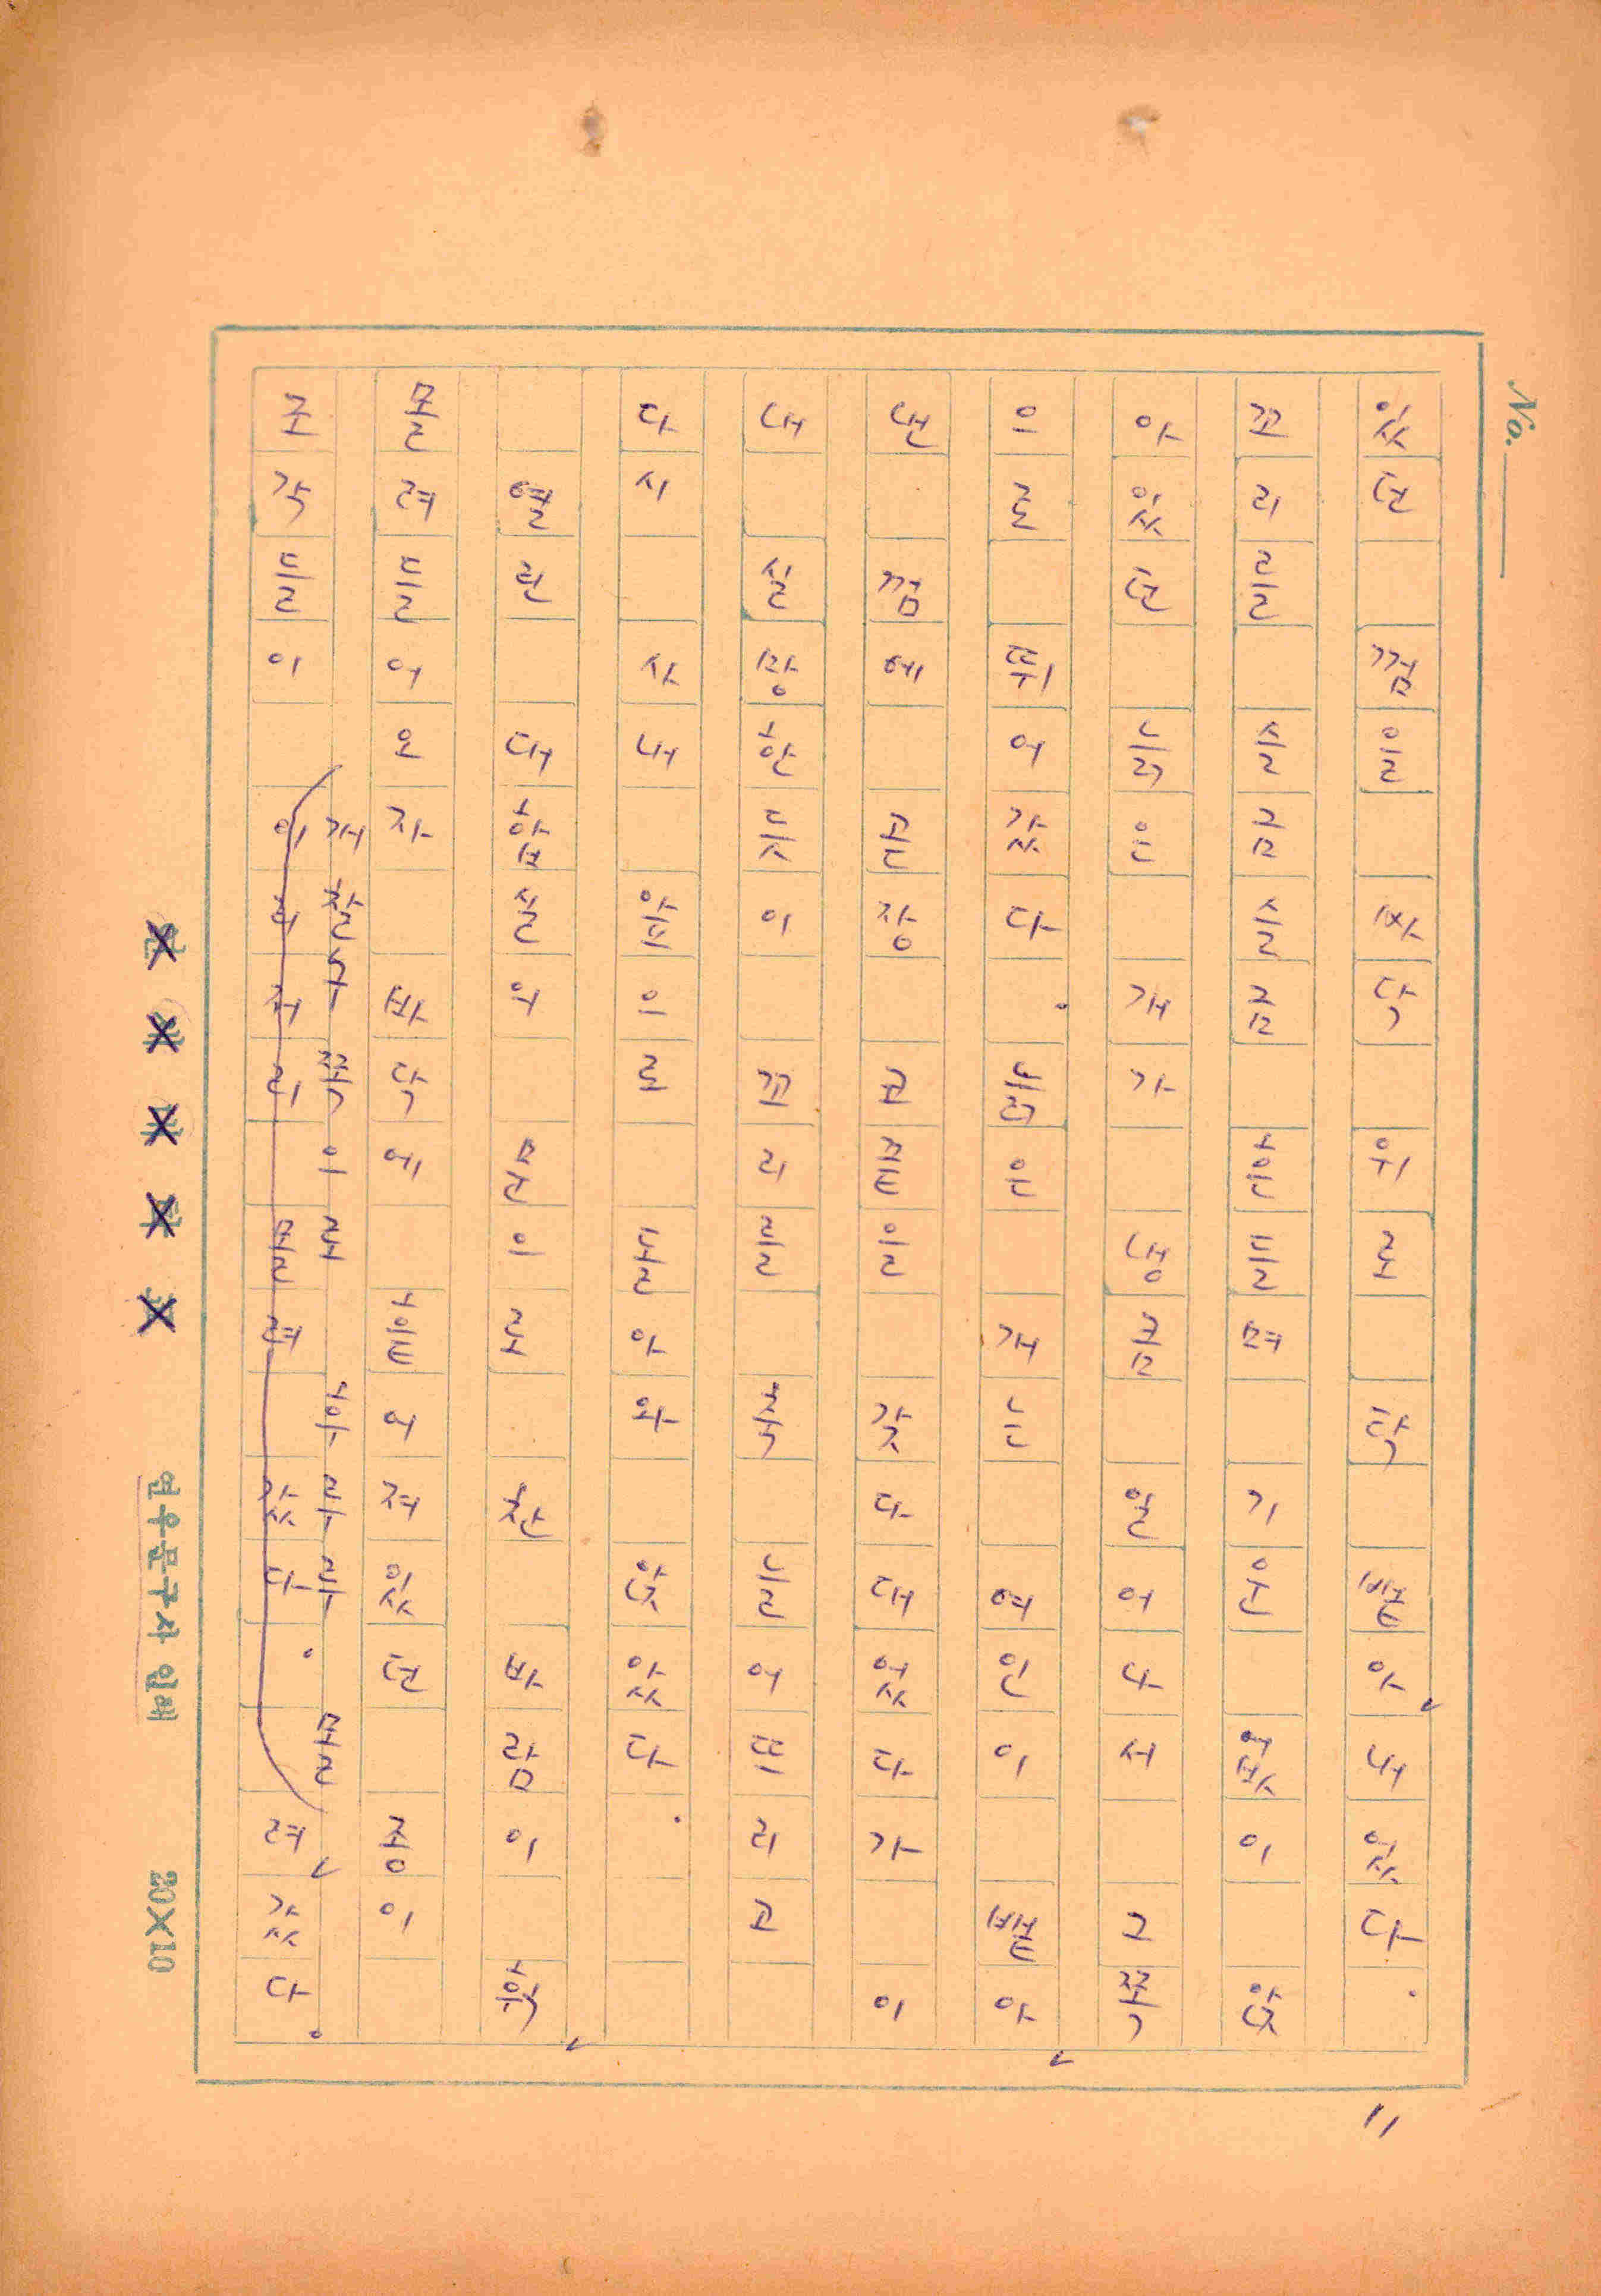 있던 껌을 바닥 위로 탁 뱉아, 내었다.
꼬리를 슬금슬금 흔들며 기운 없이 앉
아 있던 늙은 개가 냉큼 일어나서 그쪽
으로 뛰어갔다. 늙은 개는 여인이 뱉아,
낸 껌에 곧장 코끝을 갖다 대었다가 이
내 실망한 듯이 꼬리를 축 늘어뜨리고
다시 사내 앞으로 돌아와 앉았다.
열린 대합실의 문으로 찬 바람이 훅,
몰려 들어오자 바닥에 흩어져 있던 종이
조각들이 개찰구 쪽으로 후루루 몰려, 갔다.
No.
11
연우문구사 인쇄
20×10